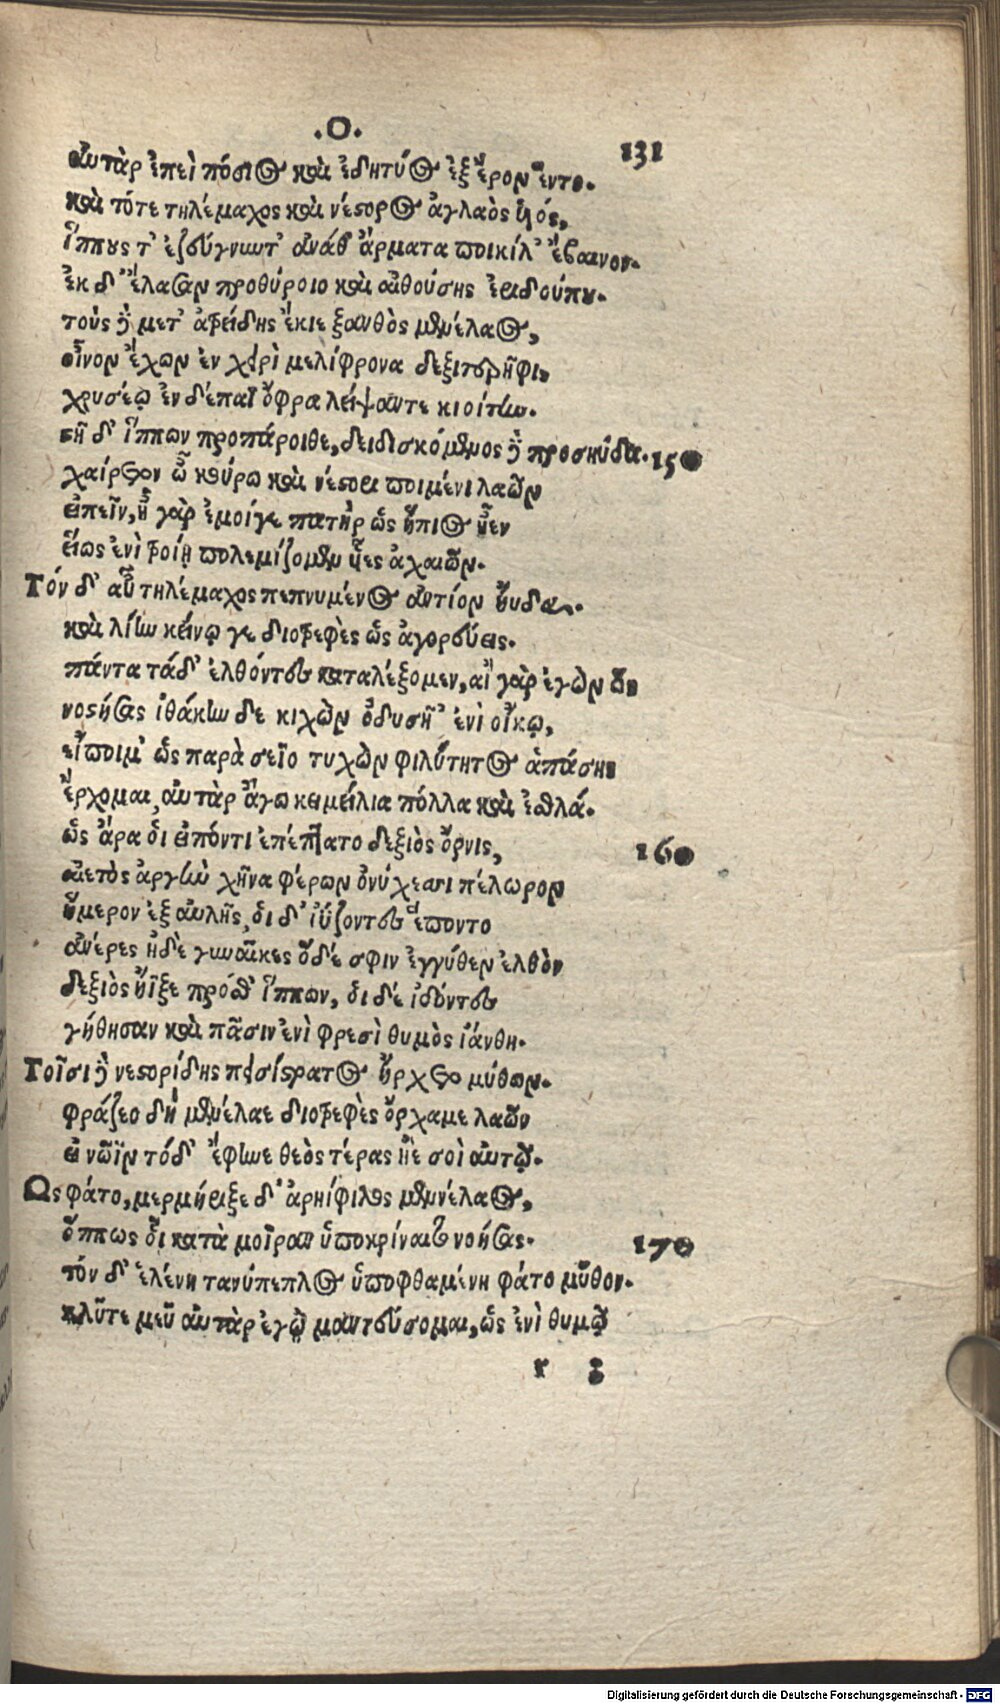 .Ο.
131
αὐτὰρ ἐπεὶ πόσιος καὶ ἐδητύος ἐξ ἔρον ἕντο.
καὶ τότε τηλέμαχος καὶ νέστορος ἀγλαὸς υἱός,
ἵππους τ' ἐζεύγνωντ' ἀνάθ' ἅρματα ποικίλ' ἔβαινον.
ἐκ δ' ἔλασαν προθύροιο καὶ αἰθούσης ἐριδούπου.
τοὺς δὲ μετ' ἀτρείδης ἔκιε ξανθὸς μενέλαος,
οἶνον ἔχων ἐν χειρὶ μελίφρονα δεξιτερῆφι,
χρυσέῳ ἐν δέπαϊ ὄφρα λείψαντε κιοίτην.
στῆ δ' ἵππων προπάροιθε, δειδισκόμενος δὲ προσηύδα.
150
χαίρετον ὦ κούρω καὶ νέστορι ποιμένι λαῶν
εἰπεῖν, ἦ γὰρ ἐμοίγε πατὴρ ὣς ἤπιος ἦεν
εἵως ἐνὶ τροίῃ πολεμίζομεν υἷες ἀχαιῶν.
Τόν δ' αὖ τηλέμαχος πεπνυμένος ἀντίον ηὔδα.
καὶ λίην κείνῳ γε διοτρεφὲς ὡς ἀγορεύεις.
πάντα τάδ' ἐλθόντες καταλέξομεν, αἲ γὰρ ἐγὼν ὣς
νοστήσας ἰθάκην δε κιχὼν ὀδυσῆ' ἐνὶ οἴκῳ,
εἴποιμ' ὡς παρὰ σεῖο τυχὼν φιλότητος ἁπάσης
ἔρχομαι, αὐτὰρ ἄγω κειμείλια πόλλα καὶ ἐσθλά.
ὣς ἄρα οἱ εἰπόντι ἐπέπτατο δεξιὸς ὄρνις,
160
αἰετὸς ἀργὴν χῆνα φέρων ὀνύχεσσι πέλωρον
ἥμερον ἐξ αὐλῆς, οἱ δ' ἰΰζοντες ἕποντο
ἀνέρες ἠδὲ γυναῖκες ὃ δέ σφιν ἐγγύθεν ἐλθὼν
δεξιὸς ἤϊξε πρόσθ' ἵππων, οἱ δέ ἰδόντες
γήθησαν καὶ πᾶσιν ἐνὶ φρεσὶ θυμὸς ἰάνθη.
Τοῖσι δὲ νεστορίδης πεισίστρατος ἤρχετο μύθων.
φράζεο δὴ μενέλαε διοτρεφὲς ὄρχαμε λαῶν
εἰ νῶϊν τόδ' ἔφηνε θεὸς τέρας ἠὲ σοὶ αὐτῷ.
Ως φάτο, μερμήριξε δ' ἀρηίφιλος μενέλαος,
ὅππως οἷ κατὰ μοῖραν ὑποκρίναιτο νοήσας.
170
τόν δ' ἑλένη τανύπεπλος ὑποφθαμένη φάτο μῦθον.
κλῦτε μεῦ αὐτὰρ ἐγὼ μαντεύσομαι, ὡς ἐνὶ θυμῷ
r 3
Digitalisierung gefördert durch die Deutsche Forschungsgemeinschaft - DFG